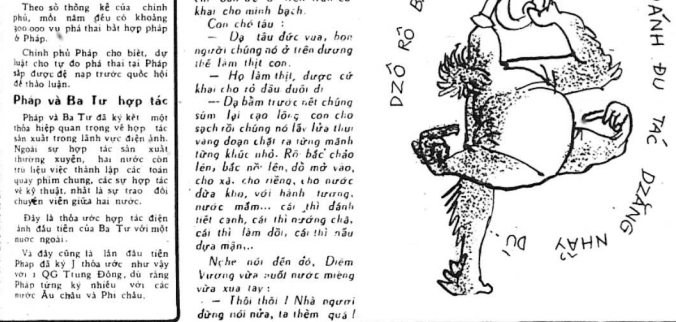 Theo sở thống kê của chính
phủ, mỗi năm đều có khoảng
300.000 vụ phá thai bất hợp pháp
ở Pháp.
Chính phủ Pháp cho biết, dự
luật cho tự do phá thai tại Pháp
sắp được đệ nạp trước quốc hội
để thảo luận.
Pháp và Ba Tư hợp tác
Pháp và Ba Tư đã ký kết một
thỏa hiệp quan trọng về hợp tác
sản xuất trong lãnh vực điện ảnh.
Ngoài sự hợp tác sản xuất
thường xuyên, hai nước còn
trù liệu việc thành lập các toán
quay phim chung, các sự hợp tác
về kỹ thuật, nhất là sự trao đổi
chuyên viên giữa hai nước.
Đây là thỏa ước hợp tác điện
ảnh đầu tiên của Ba Tư với một
nước ngoài.
Và đây cũng là lần đầu tiên
Pháp đã ký 1 thỏa ước như vậy
với 1 QG Trung Đông, dù rằng
Pháp từng ký nhiều với các
nước Âu châu và Phi châu.
khai cho minh bạch.
Con chó tâu :
— Dạ tâu đức vua, bọn
người chúng nó ở trên dương
thế làm thịt con.
— Họ làm thịt, được cứ
khai cho rõ đầu đuôi đi
— Dạ bẩm trước hết chúng
súm lại cạo lông con cho
sạch rồi chúng nó lấy lửa thui
vàng đoạn chặt ra từng mảnh
từng khúc nhỏ. Rồi bắc chảo
lên, bắc nồi lên, đổ mở vào,
cho xả, cho riềng, cho nước
dừa khô, với hành tương,
nước mắm... cái thì đánh
tiết canh, cái thì nướng chả,
cái thì làm dồi, cái thì nấu
dựa mận...
Nghe nói đến đó, Diêm
Vương vừa nuốt nước miếng
vừa xua tay :
— Thôi thôi ! Nhà ngươi
đừng nói nữa, ta thèm quá !
DZÓ RÔ B
ÁNH ĐU TÁC DZÁNG NHẦY DÙ